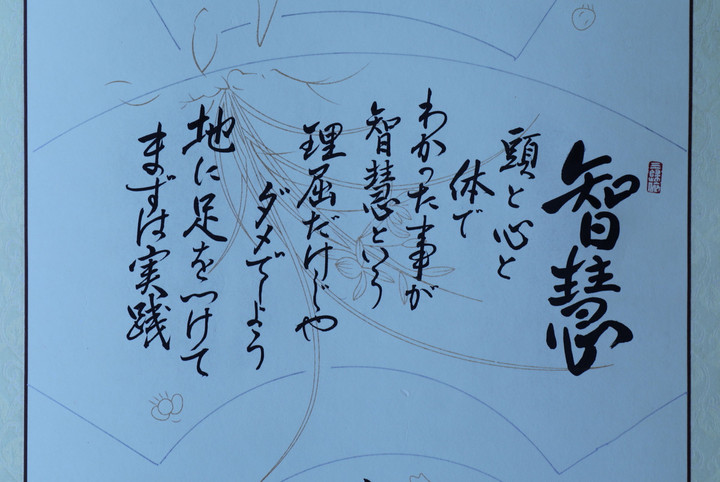 智慧
頭と心と
体で
わかった事が
智慧という
理屈だけじゃ
ダメでしょう
地に足をつけて
まずは実践